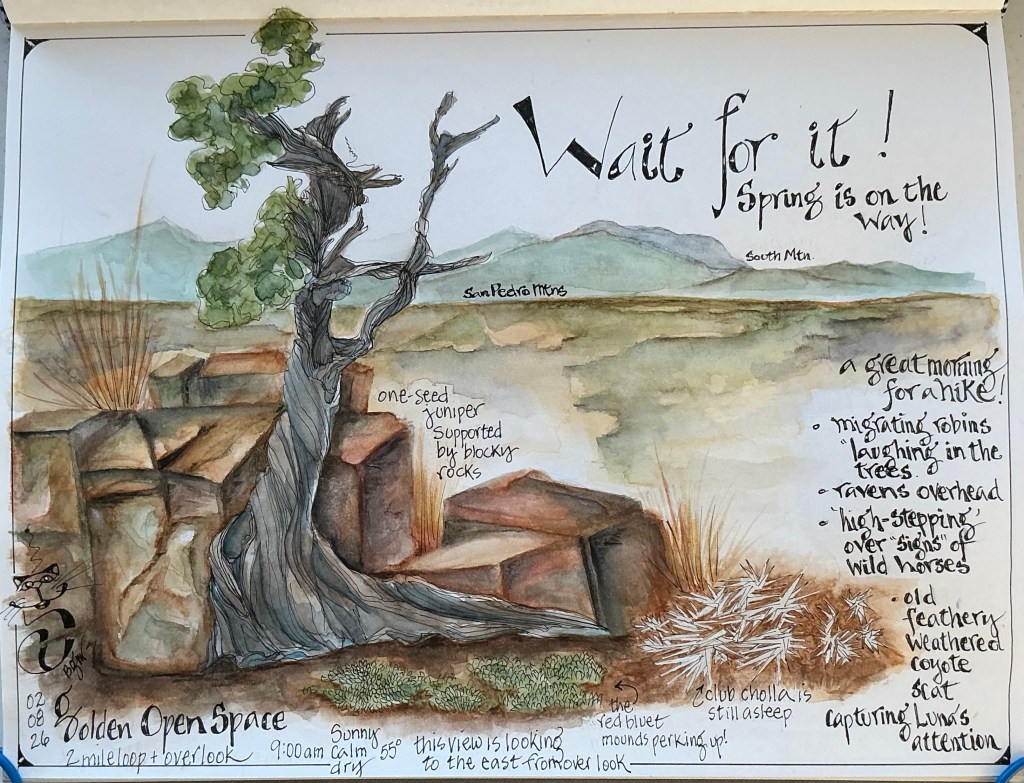 Wait for it!
Spring is on the
way!
South Mtn.
San Pedro Mtns
one-seed
juniper
supported
by blocky
rocks
a great morning
for a hike!
• migrating robins
"laughing" in the
trees.
• ravens overhead
• 'high-stepping'
over "signs" of
wild horses
• old
feathery
weathered
coyote
scat
capturing Luna's
attention
club cholla is
still asleep
the
red bluet
mounds perking up!
this view is looking
to the east from overlook
Sunny
Calm 55°
dry
9:00am
Golden Open Space
2 mile loop + overlook
02
08
26